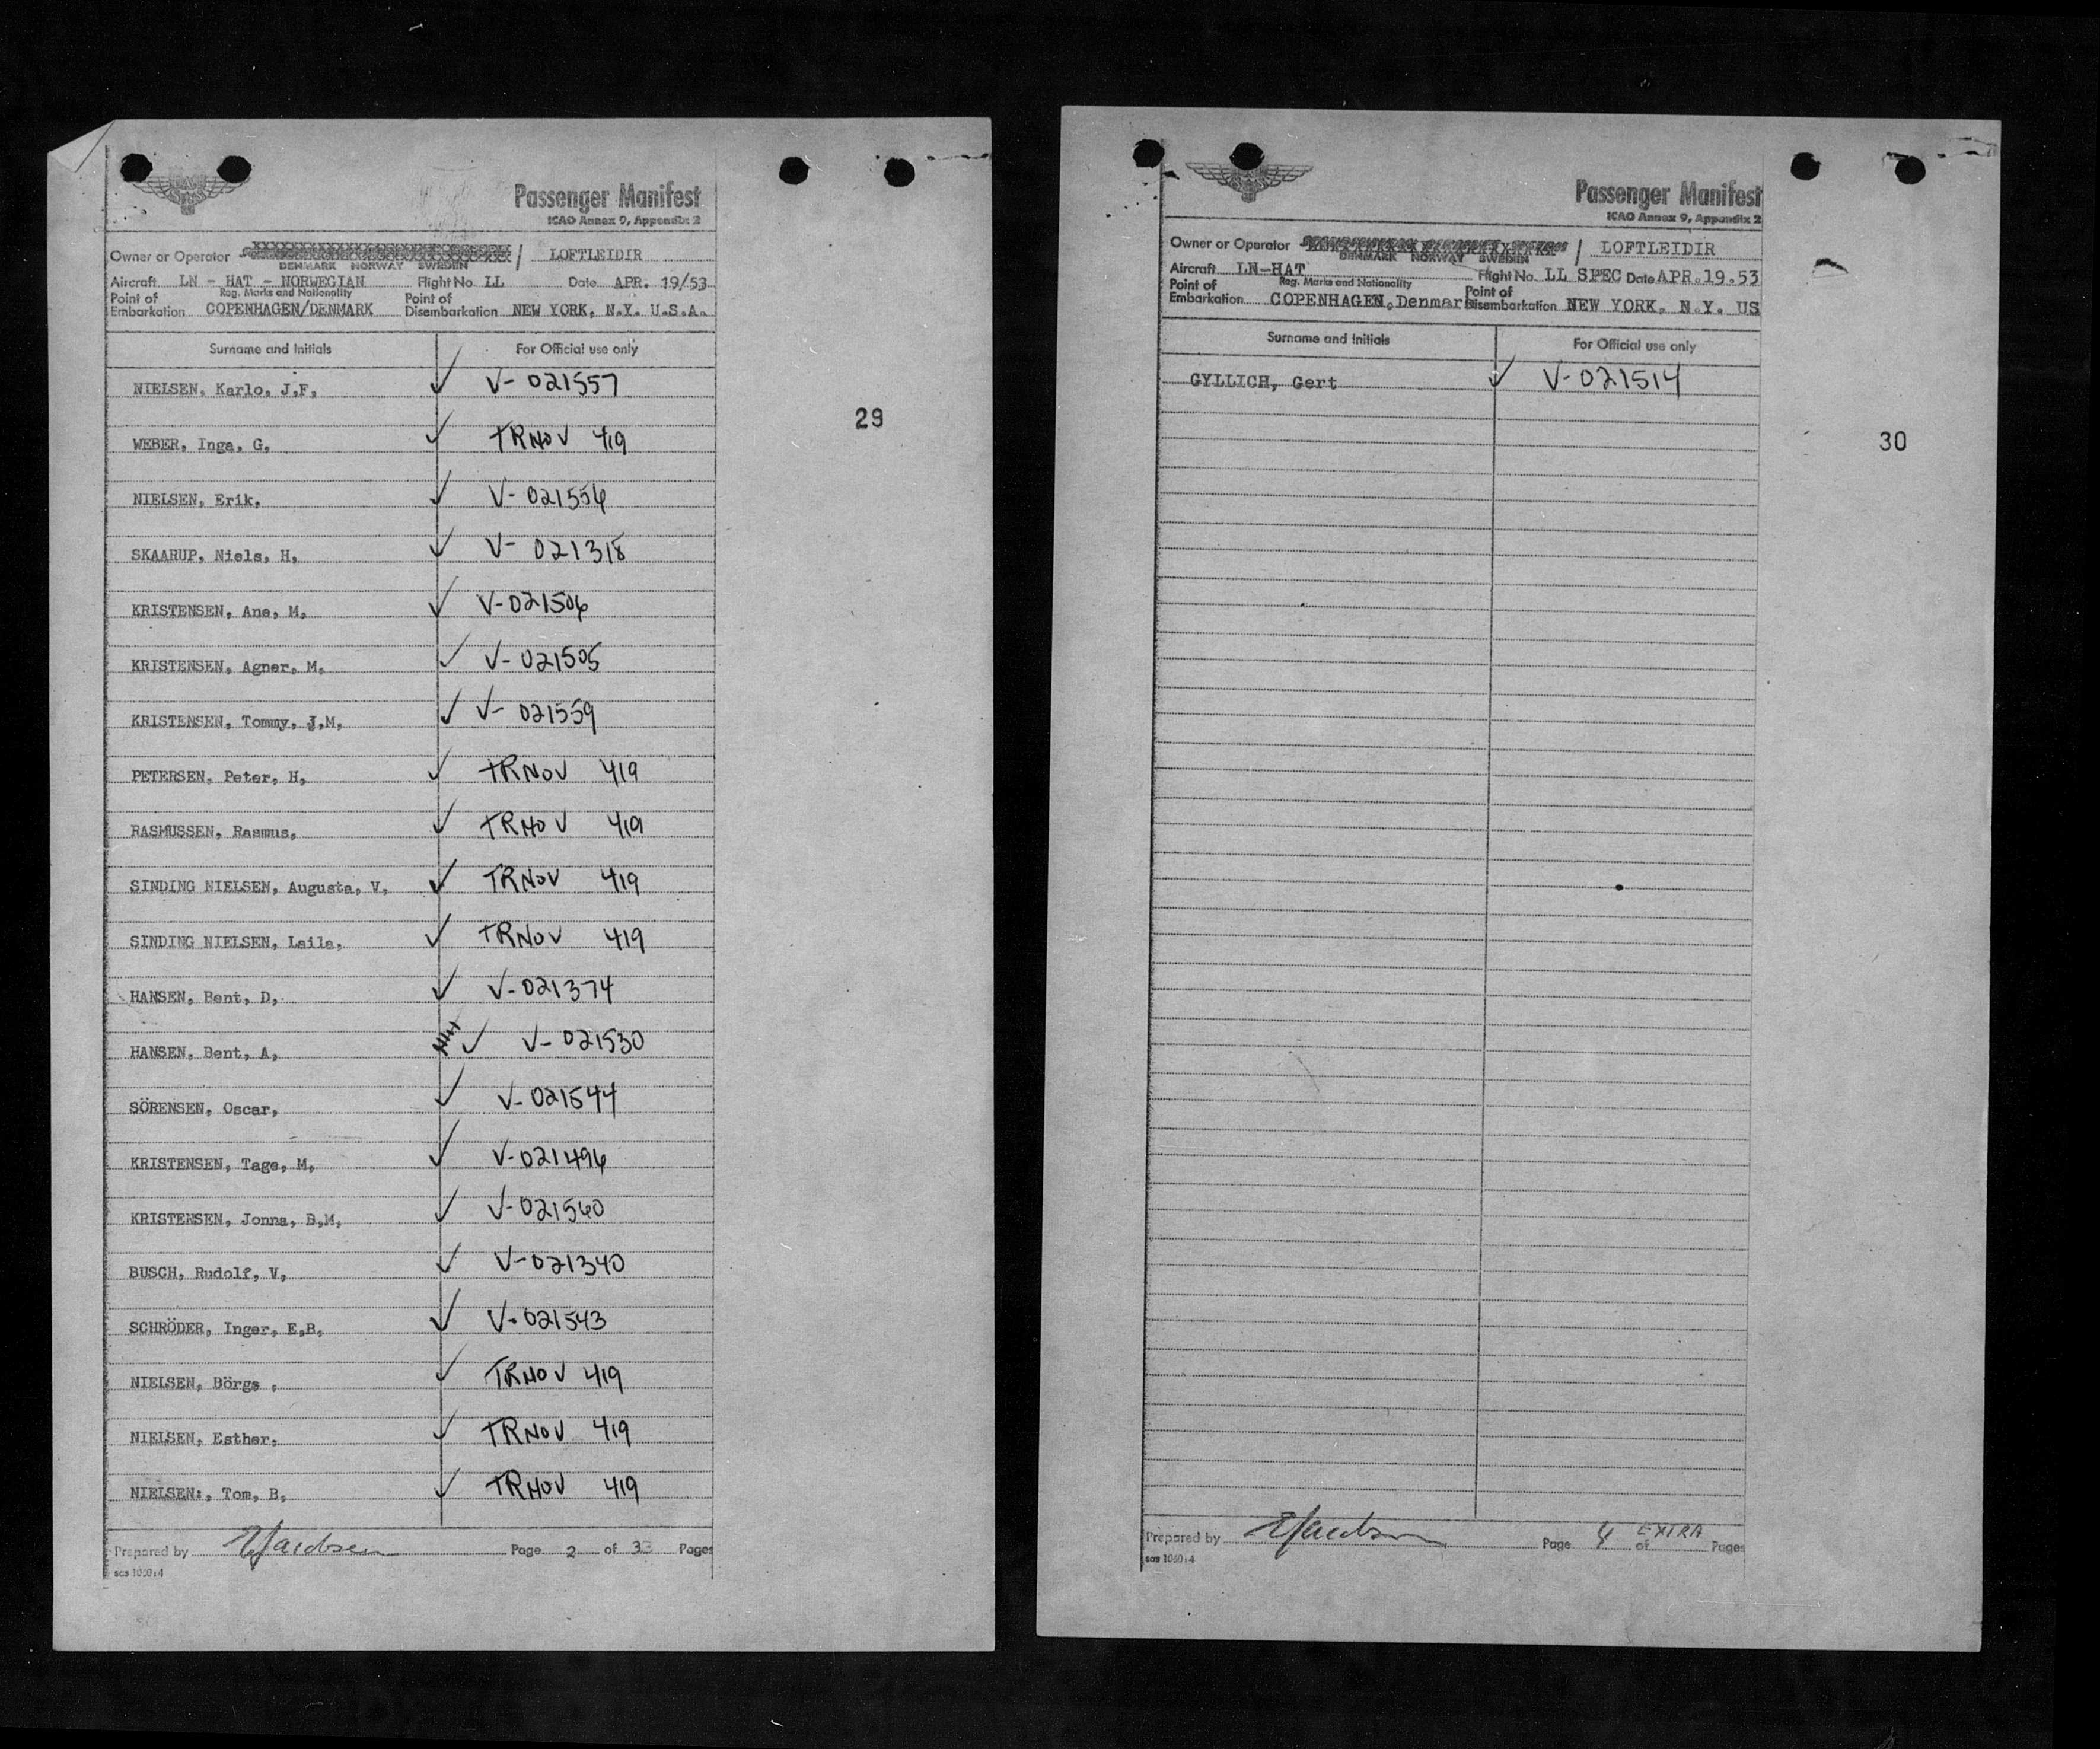 Passenger Manifest
ICAO Annex 9, Appendix 2
Owner or Operator / LOFTLEIDIR
DENMARK NORWAY SWEDEN
Aircraft LN - HAT - NORWEGIAN Flight No. LL Date APR. 19/53
Reg. Marks and Nationality
Point of Embarkation COPENHAGEN/DENMARK Point of Disembarkation NEW YORK, N.Y. U.S.A.
Surname and Initials For Official use only
NIELSEN, Karlo, J,F, ✓ V- 021557
WEBER, Inga, G, ✓ TRNOV 419
NIELSEN, Erik, ✓ V- 021556
SKAARUP, Niels, H, ✓ V- 021318
KRISTENSEN, Ane, M, ✓ V-021506
KRISTENSEN, Agner, M, ✓ V- 021505
KRISTENSEN, Tommy, J,M, ✓ V- 021559
PETERSEN, Peter, H, ✓ TRNOV 419
RASMUSSEN, Rasmus, ✓ TRNOV 419
SINDING NIELSEN, Augusta, V, ✓ TRNOV 419
SINDING NIELSEN, Laila, ✓ TRNOV 419
HANSEN, Bent, D, ✓ V-021374
HANSEN, Bent, A, ✓ V- 021530
SÖRENSEN, Oscar, ✓ V-021544
KRISTENSEN, Tage, M, ✓ V-021496
KRISTENSEN, Jonna, B,M, ✓ V-021560
BUSCH, Rudolf, V, ✓ V-021340
SCHRÖDER, Inger, E,B, ✓ V-021543
NIELSEN, Börge , ✓ TRNOV 419
NIELSEN, Esther, ✓ TRNOV 419
NIELSEN:, Tom, B, ✓ TRNOV 419
Prepared by EJacobsen Page 2 of 33 Pages
sas 1060:4
29
Passenger Manifest
ICAO Annex 9, Appendix 2
Owner or Operator / LOFTLEIDIR
DENMARK NORWAY SWEDEN
Aircraft LN-HAT Flight No. LL SPEC Date APR.19.53
Reg. Marks and Nationality
Point of Embarkation COPENHAGEN,Denmark Point of Disembarkation NEW YORK, N.Y. US
Surname and Initials For Official use only
GYLLICH, Gert ✓ V-021514
30
Prepared by EJacobsen Page 4 of EXTRA Pages
sas 1060:4